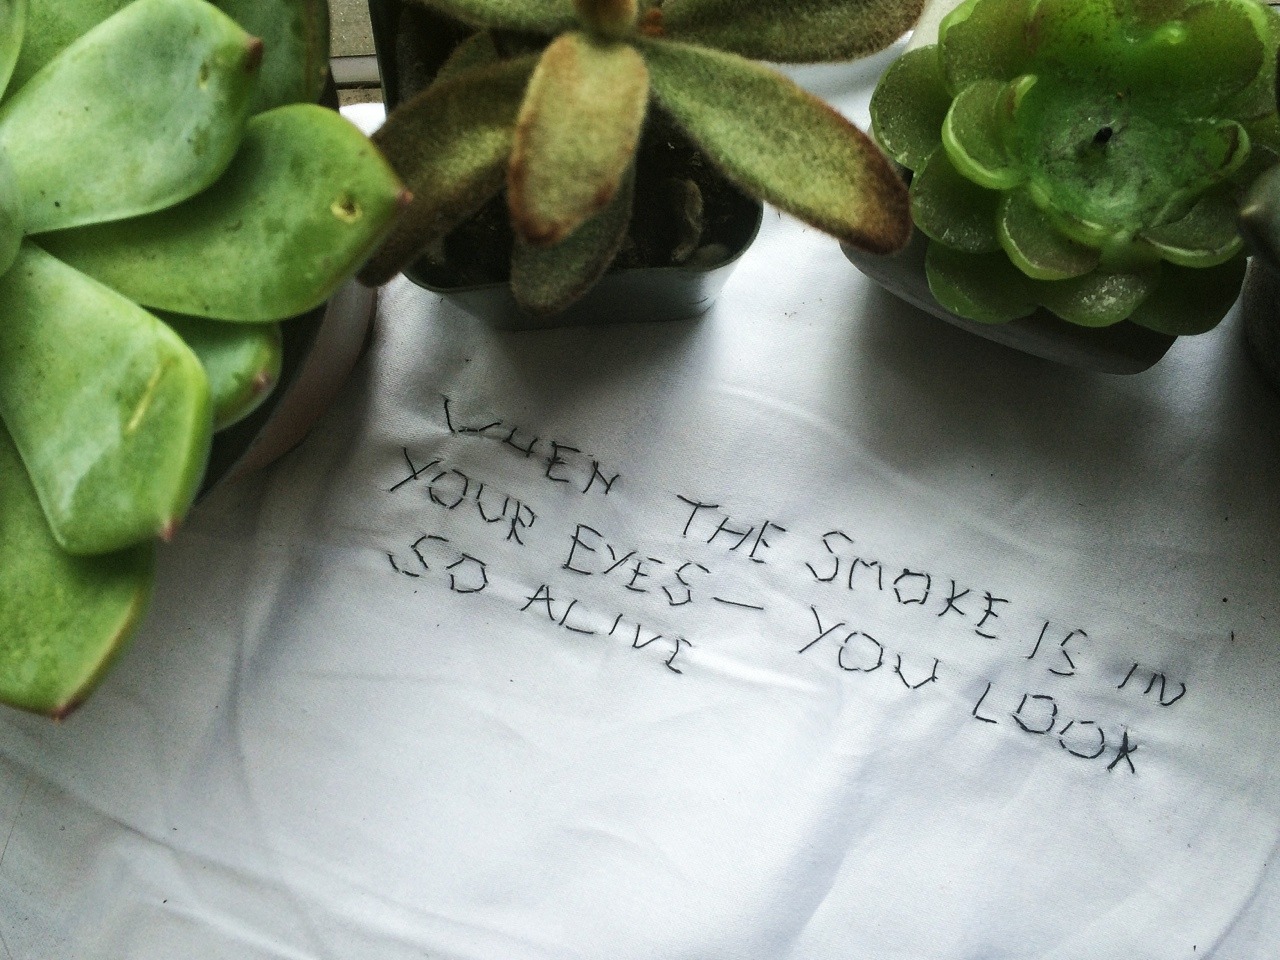 WHEN THE SMOKE IS IN
YOUR EYES— YOU LOOK
SO ALIVE